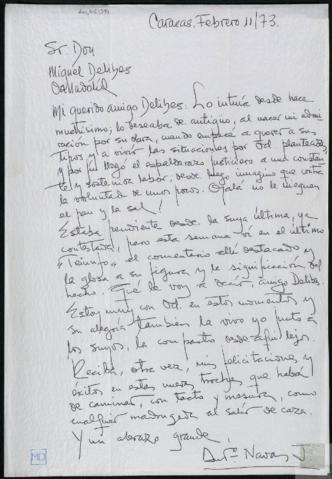 Caracas, Febrero 11/73.
Sr. Don
Miguel Delibes
Valladolid
Mi querido amigo Delibes: Lo intuía desde hace
muchísimo; lo deseaba de antiguo, al nacer mi admi-
ración por su obra, cuando empecé a querer a sus
tipos y a vivir las situaciones por Ud. planteadas,
y por fin llegó el espaldarazo justiciero a una constan-
te y sostenida labor, desde luego imagino que contra
la voluntad de unos pocos. Ojalá no le nieguen
el pan y la sal!
Estaba pendiente desde la suya última, ya
contestada, pero esta semana vi en el último
"Triunfo" el comentario allí destacado y
la glosa a su figura y le significación del
hecho. Qué le voy a decir, amigo Delibes,
Estoy muy con Ud. en estos momentos y
su alegría también la vivo yo junto a
los suyos, la comparto desde aquí lejos.
Reciba, otra vez, mis felicitaciones, y
éxitos en estas nuevas trochas que habrá
de caminar, con tacto y mesura, como
cualquier madrugada al salir de caza.
Y un abrazo grande,
Navas J.
MD